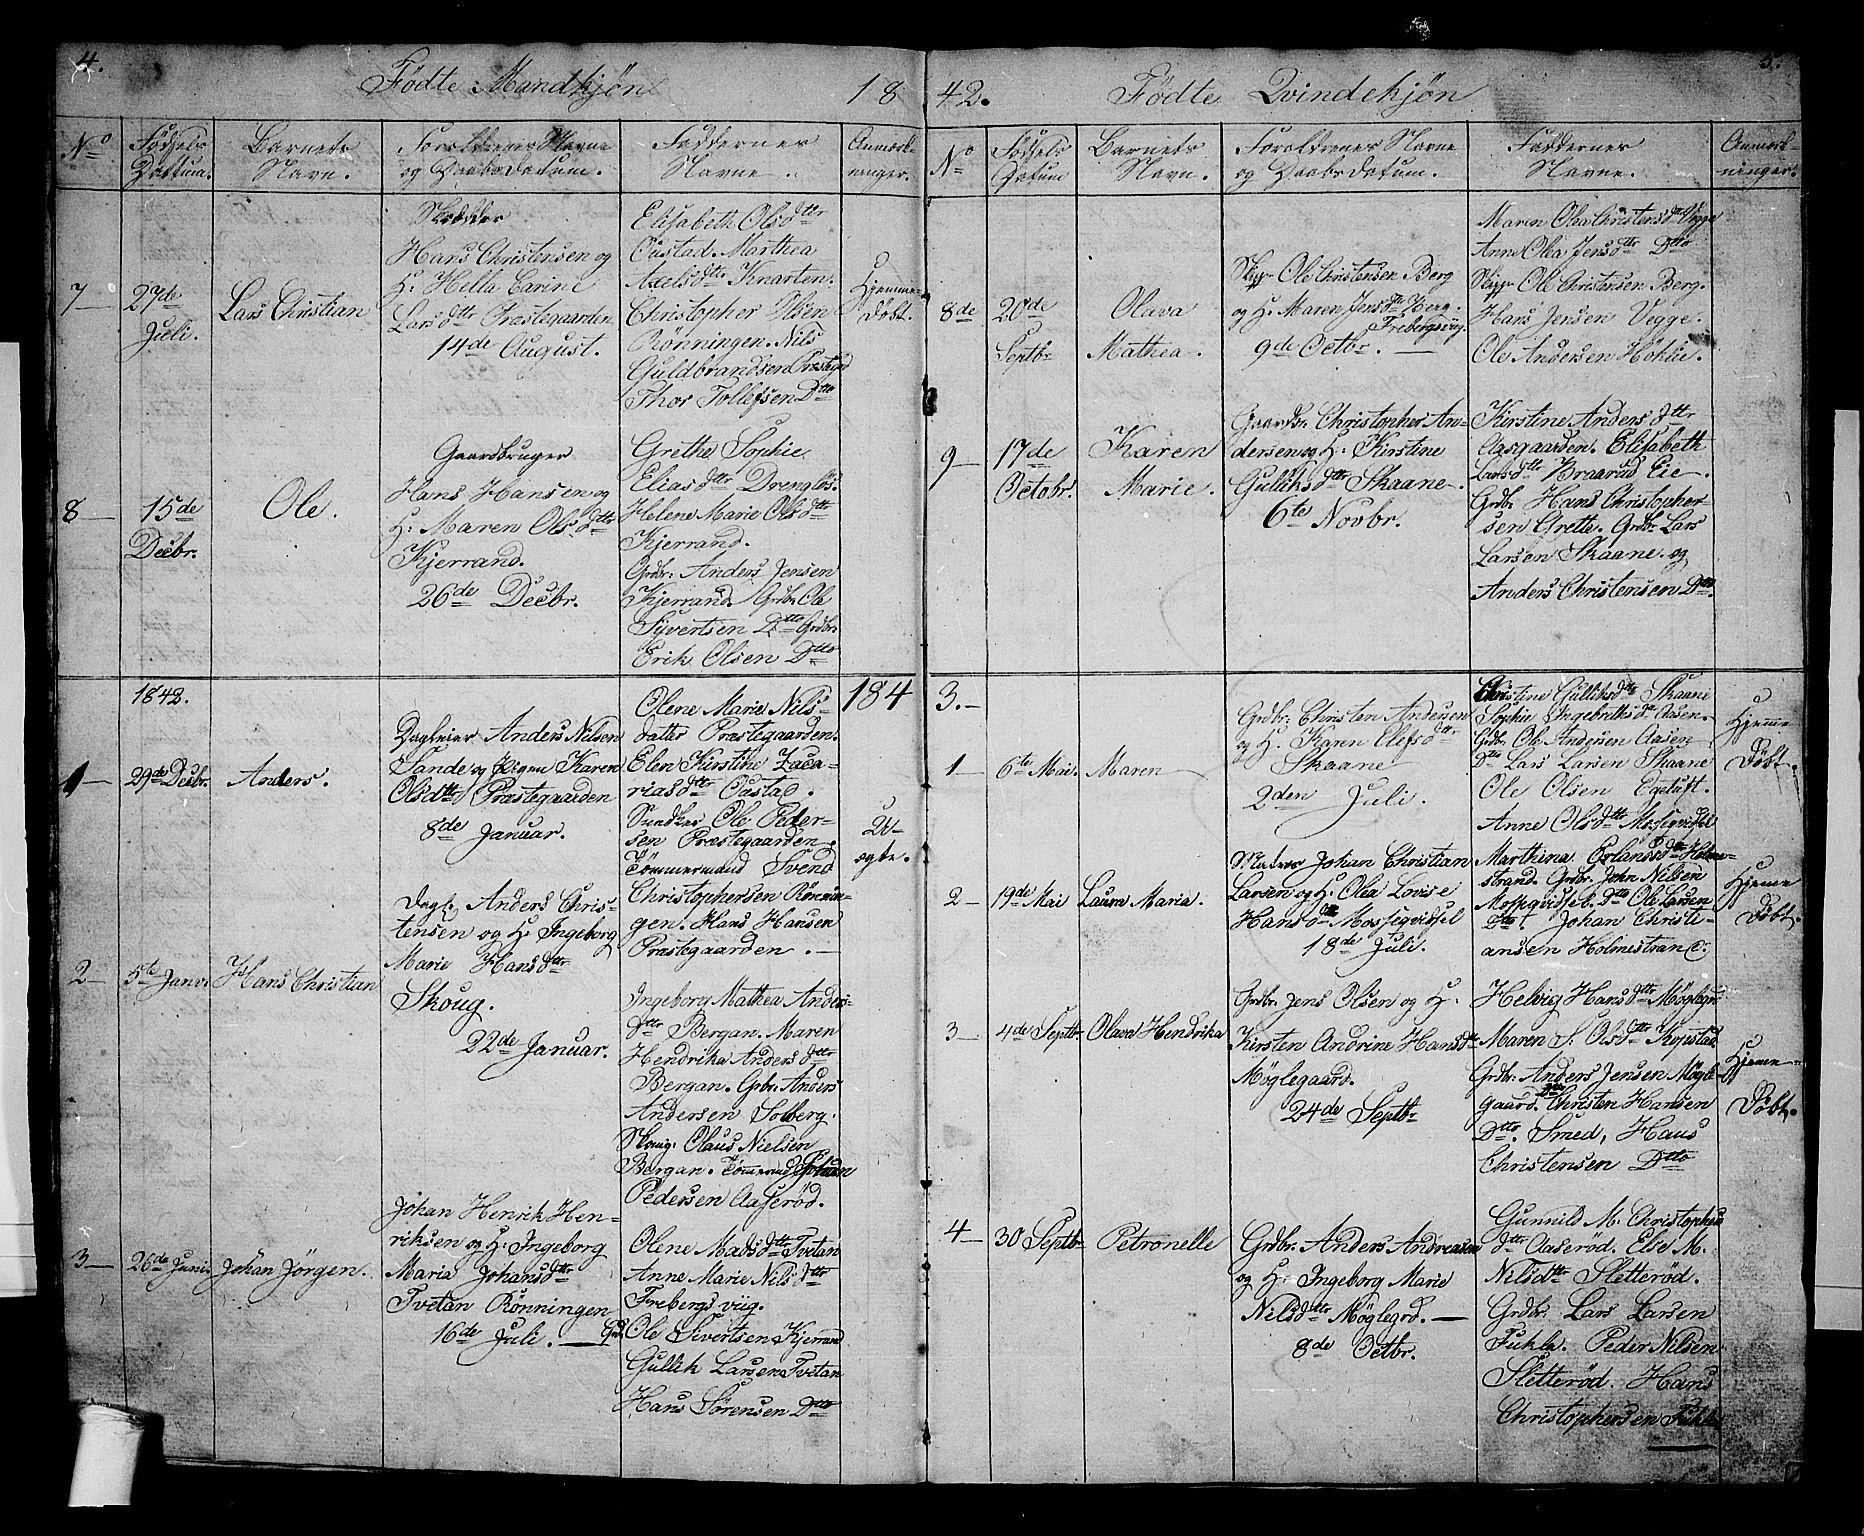 4.
Födte Mandkjön
18
No
Födsels Dattum.
Barnets Navn.
Foreldrenes Navne og Daabsdatum.
Faddernes Navne.
Anmærk-ninger.
7
27de Juli.
Lars Christian
Hans Christensen og
H. Hella Carine
Larsdtr Præstegaarden
14de August.
Elisabeth Olsdttr
Oustad. Marthea
Axelsdttr Knarten.
Christopher Olsen
Rönningen. Nils
Guldbrandsen
Thor Tollefsen Dtto
Hjemme-
Döbt.
8
15de
Decbr.
Ole.
Gaardbruger
Hans Hansen og
H. Maren Olsdttr
Kjerrand.
26de Decbr.
Grethe Sophie
Eliasdttr
Helene Marie Olsdttr
Kjerrand.
Grdbr. Anders Jensen
Kjerrand. Grdbr. Ole
Sivertsen Dtto Grdbr.
Erik Olsen Dtto
1842.
184
1
29de Decbr.
Anders.
Anders Nilsen
Sande og Pigen Karen
Olsdttr Præstegaarden
8de Januar.
Olene Marie Nils-
datter Præstegaarden.
Elen Kirstine Zaca-
riasdttr Oustad.
Ole Peder-
sen Præstegaarden.
Tömmermand Svend
Christophersen Rönnin-
gen. Hans Hansen
Præstegaarden.
U-
ægte.
2
5te Januar
Hans Christian
Anders Chris-
tensen og H. Ingeborg
Marie Hansdttr
Skoug.
22de Januar.
Ingeborg Mathea Anders-
Dttr Bergan. Maren
Hendrika Andersdttr
Bergan. Grbr. Anders
Andersen Solberg.
Olaus Nielsen
Bergan.
Pedersen Aaseröd.
3
26de Juni
Johan Jörgen.
Johan Henrik Hen-
riksen og H. Ingeborg
Maria Johansdttr
Tvetan Rönningen
16de Juli.
Olene Madsdttr Tvetan
Anne Marie Nilsdttr
Frebergsviig.
Ole Sivertsen Kjerrand
Gullik Larsen Tvetan
Hans Sörensen Dtto
5.
42.
Födte Qvindekjön
No
Födsels Datum
Barnets Navn.
Foreldrenes Navne og Daabsdatum.
Faddernes Navne.
Anmærk-ninger.
8de
20de
Septbr
Olava
Mathea.
Ole Christensen Berg
og H. Maren Jensdttr Berg.
Frebergsviig.
9de Octbr.
Maren Olea Christensdttr Vegge
Anne Olea Jensdttr Dtto
Ole Christensen Berg.
Hans Jensen Vegge.
Ole Andersen
9
17de
Octobr.
Karen
Marie.
Gaardbr. Christopher An-
dersen og H. Kirstine
Gulliksdttr Skaane.
6te Novbr.
Kirstine Andersdttr
Aasgaarden. Elisabeth
Larsdttr Braarud Eie.
Grdbr. Hans Christopher-
sen Grette. Grdbr. Lars
Larsen Skaane. og
Anders Christensen Dtto.
3.
1
6te Mai.
Maren
Grdbr. Christen Andersen
og H. Karen Elefsdttr
Skaane
2den Juli.
Christine Gulliksdttr Skaane
Sophie Ingebrethsdttr Aasen.
Grdbr. Ole Andersen Aasen
Dtto Lars Larsen Skaane
Ole Olsen
Anne Olsdttr
Hjemme
Döbt.
2
19de Mai
Laura Maria.
Johan Christian
Larsen og H. Olea Lovise
Hansdttr
18de Juli.
Marthina
strand. Grdbr. John Nilsen
Dtto Ole Larsen
Dtto. Johan Christi-
ansen Holmestrand.
Hjemme
Döbt.
3
4de Septbr
Olava Hendrika
Grdbr. Jens Olsen og H.
Kirsten Andrine Hansdtr
Möglegaard.
24de Septbr
Helvig Hansdttr Möglegrd
Maren S. Olsdttr Kopstad
Grdbr. Anders Jensen Mögle-
gaard. Christen Hansen
Dtto. Smed, Hans
Christensen Dtto
Hjemme-
Döbt.
4
30 Septbr
Petronelle
Grdbr. Anders Andreasen
og H. Ingeborg Marie
Nilsdttr Möglegrd.
8de Octbr.
Gunnild M. Christophers-
dttr Aaseröd. Else M.
Nilsdttr Sletteröd.
Grdbr. Lars Larsen
Fukle. Peder Nilsen
Sletteröd. Hans
Christophersen Fukle